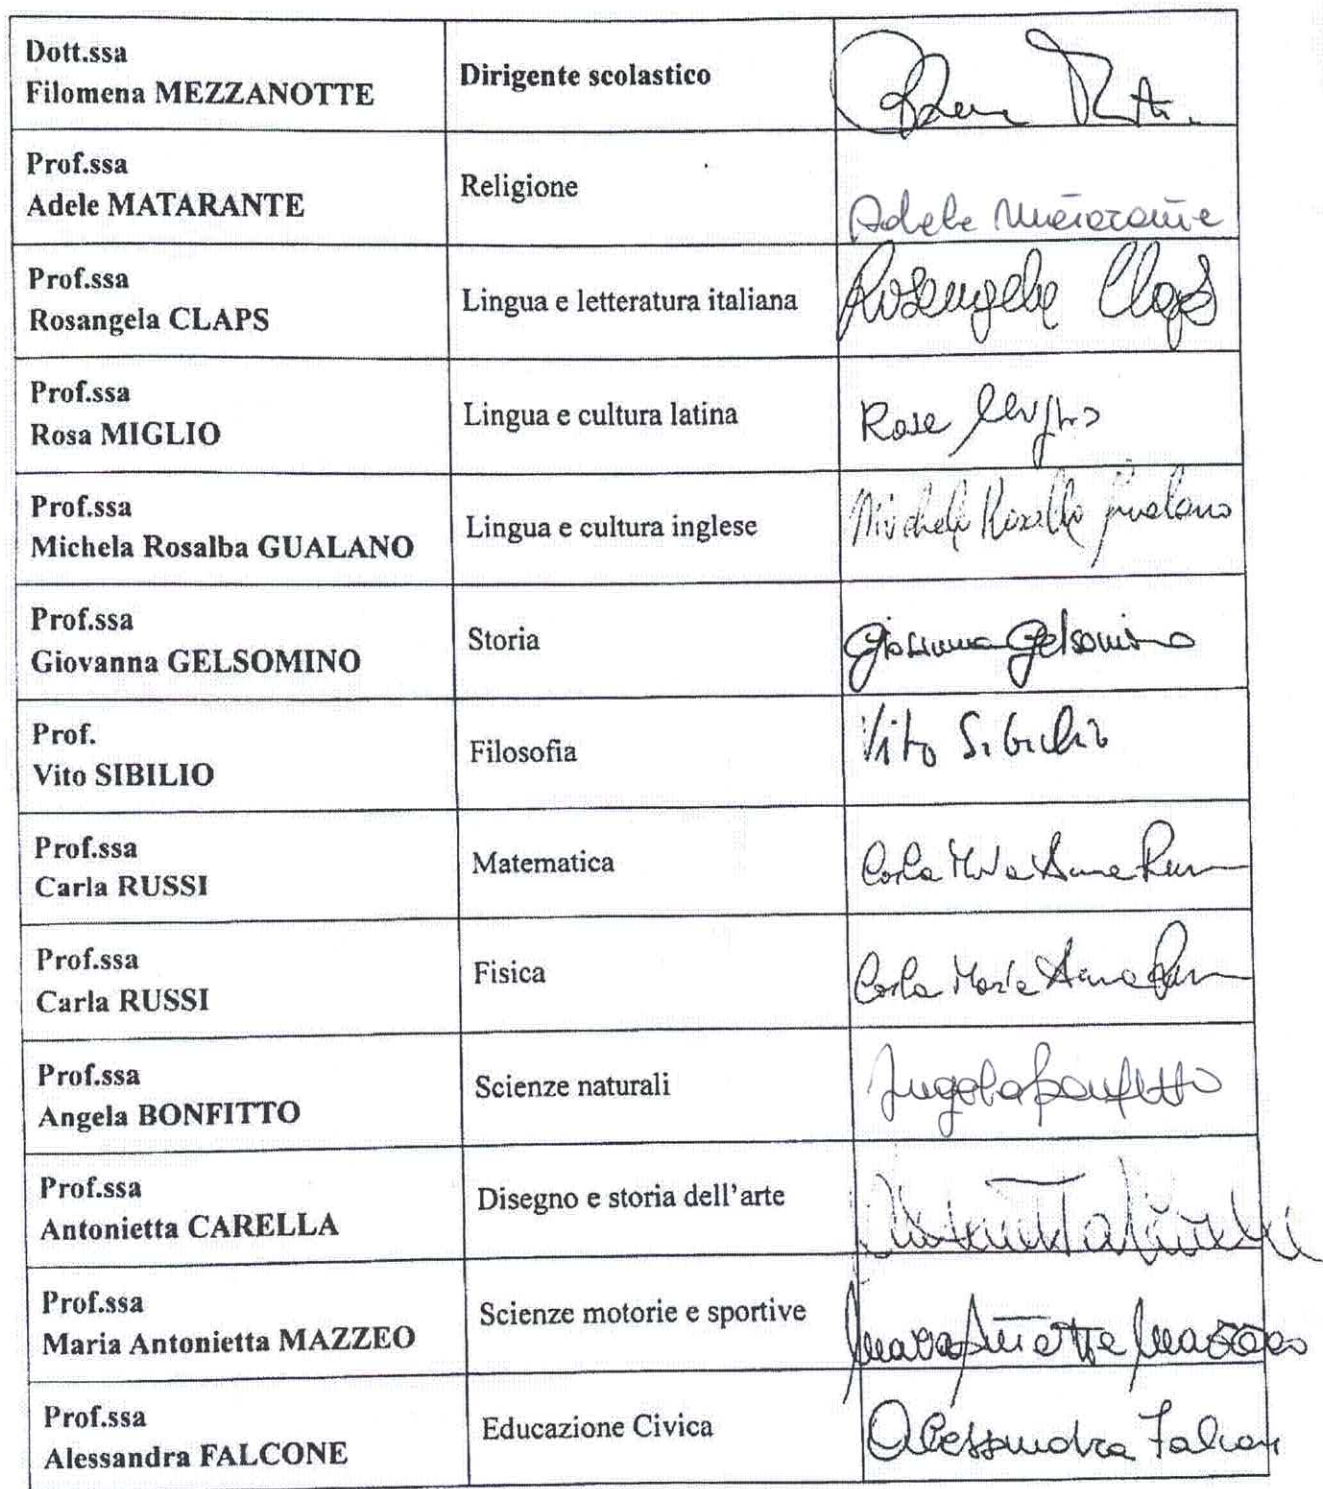 Dott.ssa
Filomena MEZZANOTTE
Dirigente scolastico
Prof.ssa
Adele MATARANTE
Religione
Adele Matarante
Prof.ssa
Rosangela CLAPS
Lingua e letteratura italiana
Rosangela Claps
Prof.ssa
Rosa MIGLIO
Lingua e cultura latina
Rosa Miglio
Prof.ssa
Michela Rosalba GUALANO
Lingua e cultura inglese
Michela Rosalba Gualano
Prof.ssa
Giovanna GELSOMINO
Storia
Giovanna Gelsomino
Prof.
Vito SIBILIO
Filosofia
Vito Sibilio
Prof.ssa
Carla RUSSI
Matematica
Carla Maria Anna Russi
Prof.ssa
Carla RUSSI
Fisica
Carla Maria Anna Russi
Prof.ssa
Angela BONFITTO
Scienze naturali
Angela Bonfitto
Prof.ssa
Antonietta CARELLA
Disegno e storia dell'arte
Antonietta Carella
Prof.ssa
Maria Antonietta MAZZEO
Scienze motorie e sportive
Maria Antonietta Mazzeo
Prof.ssa
Alessandra FALCONE
Educazione Civica
Alessandra Falcone